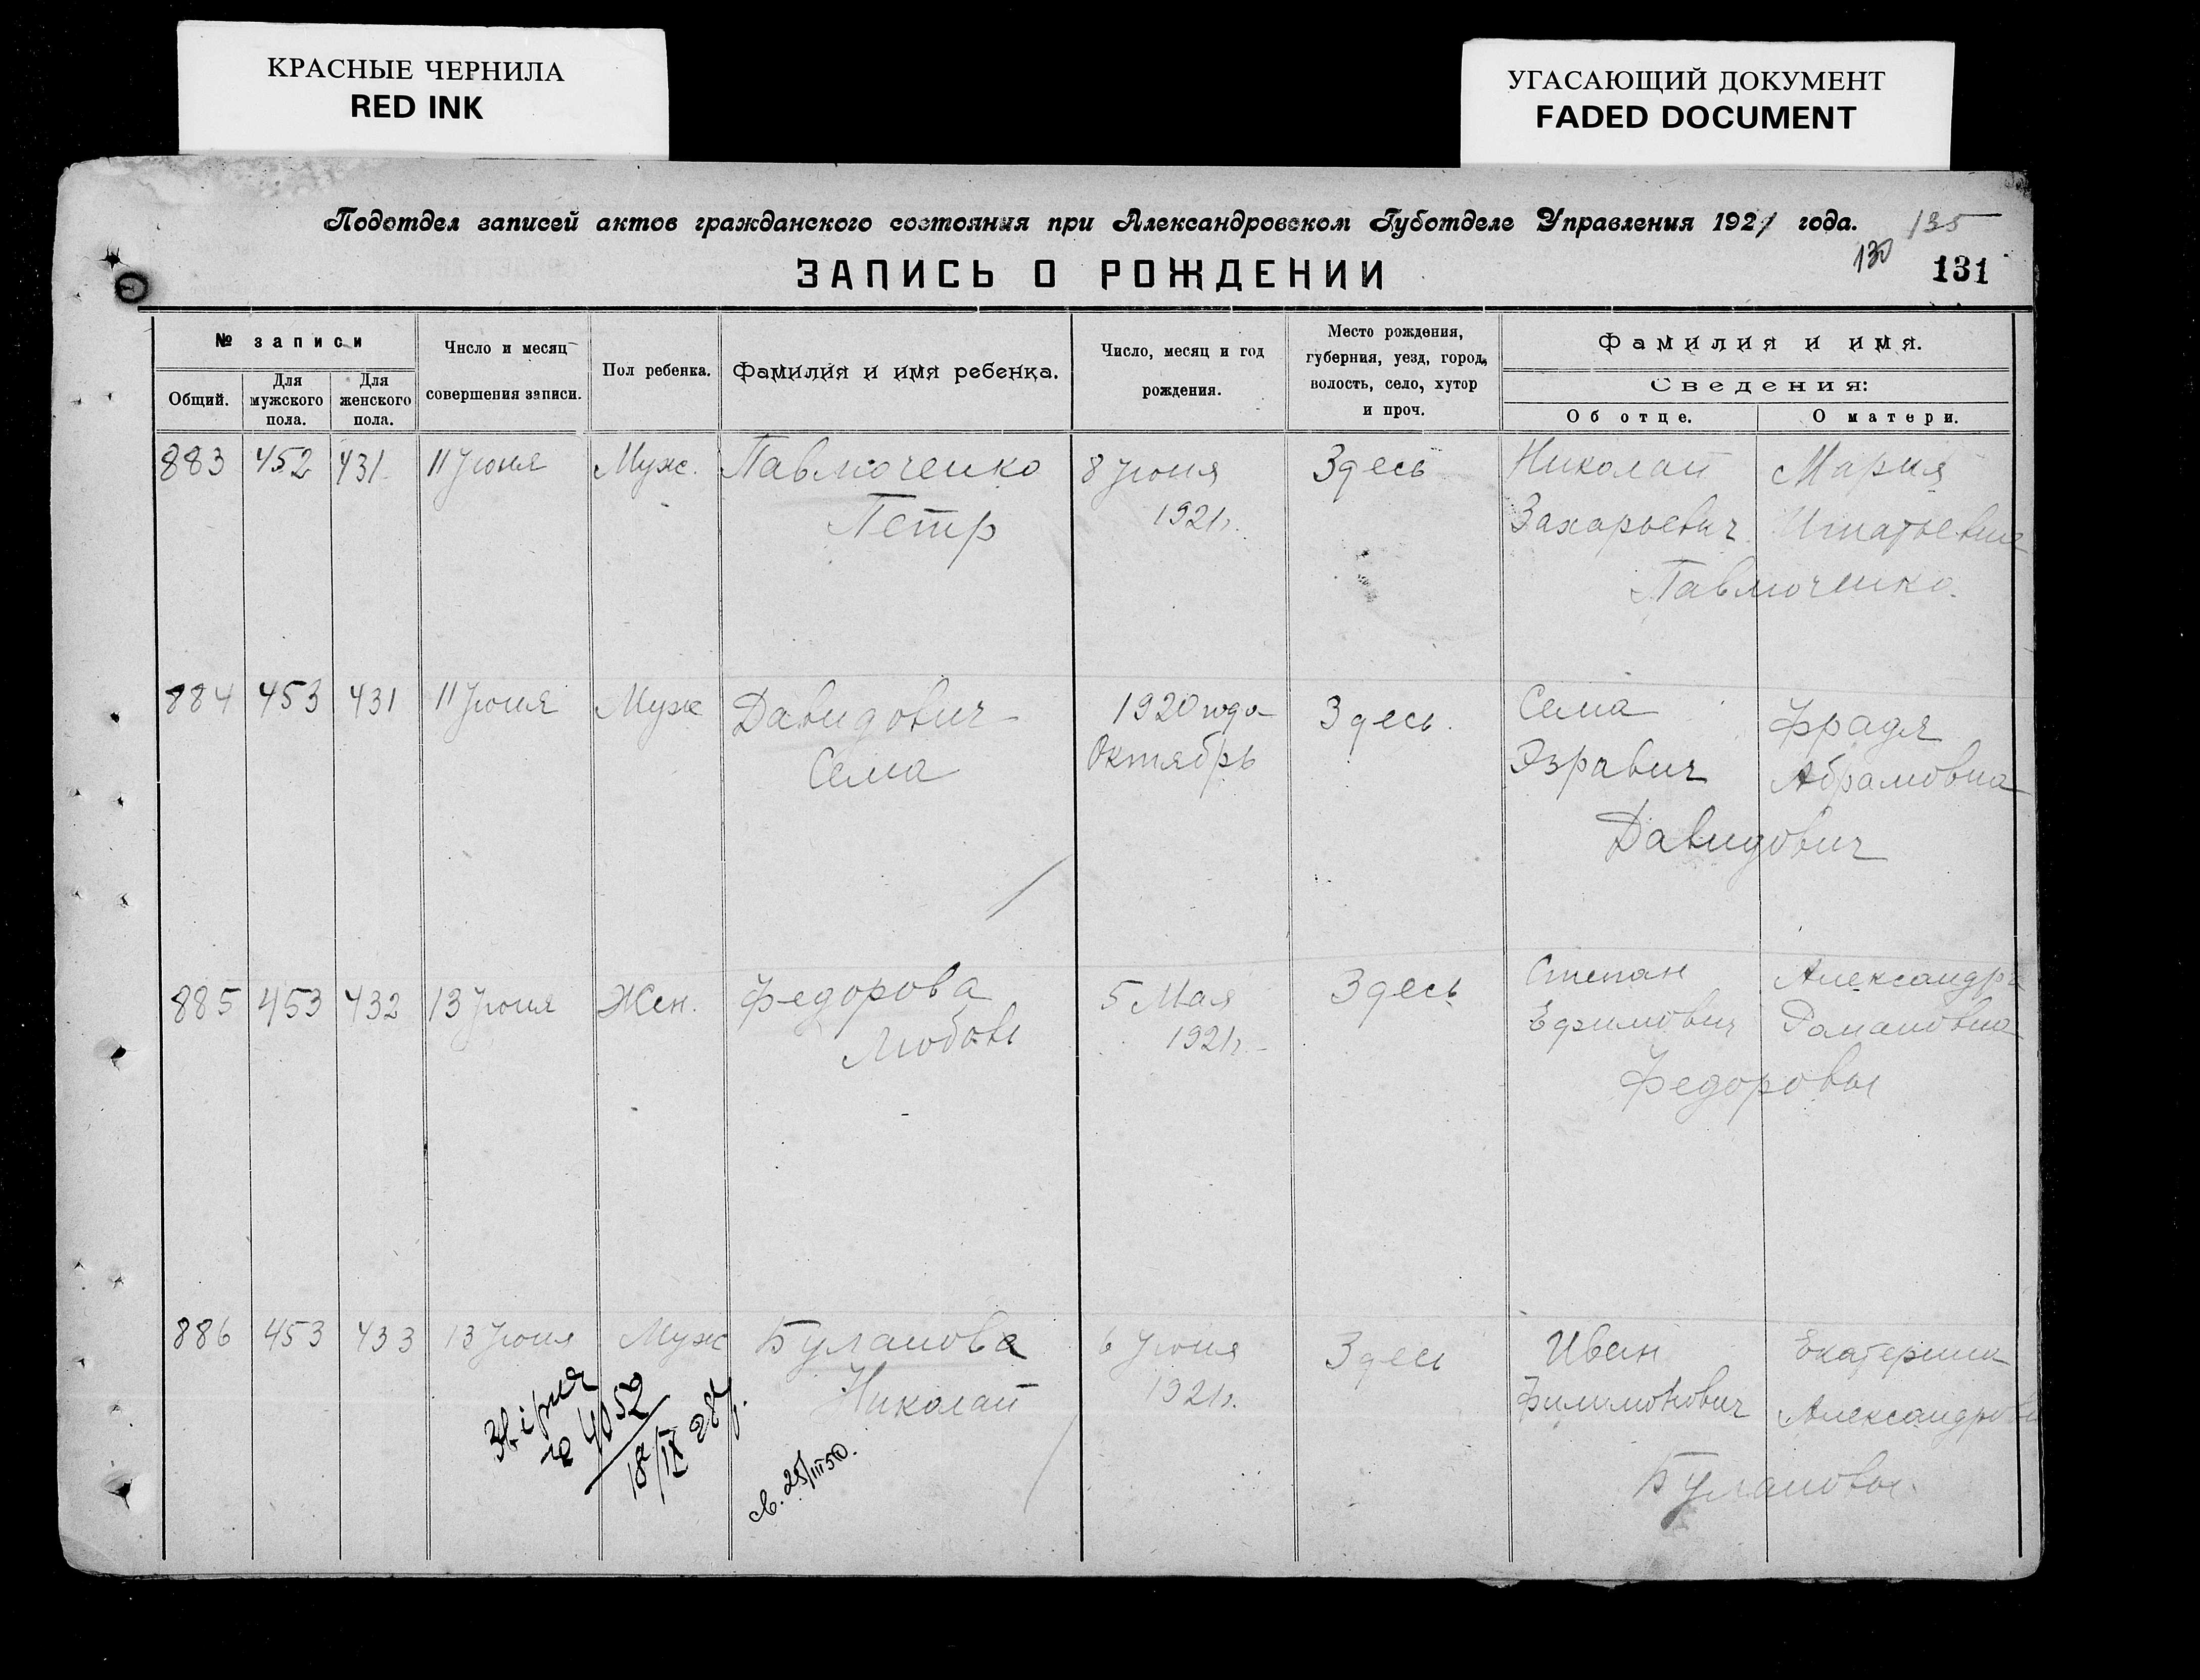 КРАСНЫЕ ЧЕРНИЛА
RED INK
УГАСАЮЩИЙ ДОКУМЕНТ
FADED DOCUMENT
Подотдел записей актов гражданского состояния при Александровском Губотделе Управления 1921 года.
135
130
131
ЗАПИСЬ О РОЖДЕНИИ
№ записи
Общий.
Для мужского пола.
Для женского пола.
Число и месяц совершения записи.
Пол ребенка.
Фамилия и имя ребенка.
Число, месяц и год рождения.
Место рождения, губерния, уезд, город, волость, село, хутор и проч.
Фамилия и имя.
Сведения:
Об отце.
О матери.
883 452 431 11 Июня Муж. Павлюченко 8 Июня Здесь Николай Мария
Петр 1921г. Захарьевич Игнатьевна
Павлюченко.
884 453 431 11 Июня Муж Давидович 1920 года Здесь. Сема Фрадя
Сема Октябрь Эзравич Абрамовна
Давидович
885 453 432 13 Июня Жен. Федорова 5 Мая Здесь Степан Александра
Любовь 1921г. Ефимович Романовна
Федоровы
886 453 433 13 Июня Муж Буланова 6 Июня Здесь Иван Екатерина
Николай 1921г. Филимонович Александровна
Булановы.
4052
18/IX 28г.
св. 25/III 50.